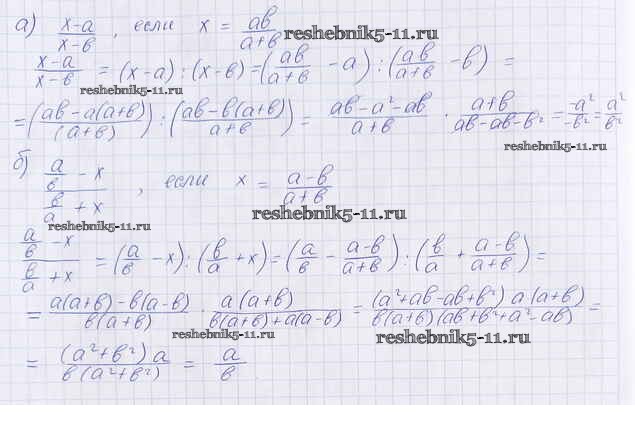 а) (x-a)/(x-в), если x = aв/(a+в)
reshebnik5-11.ru
(x-a)/(x-в) = (x-a):(x-в) = (aв/(a+в) - a):(aв/(a+в) - в) =
reshebnik5-11.ru
= ((aв-a(a+в))/(a+в)):((aв-в(a+в))/(a+в)) = (aв-a²-aв)/(a+в) · (a+в)/(aв-aв-в²) = -a²/-в² = a²/в²
reshebnik5-11.ru
б) (a/в - x)/(в/a + x), если x = (a-в)/(a+в)
reshebnik5-11.ru
reshebnik5-11.ru
(a/в - x)/(в/a + x) = (a/в - x):(в/a + x) = (a/в - (a-в)/(a+в)):(в/a + (a-в)/(a+в)) =
= (a(a+в)-в(a-в))/(в(a+в)) · (a(a+в))/(в(a+в)+a(a-в)) = ((a²+aв-aв+в²) a (a+в))/(в(a+в)(aв+в²+a²-aв)) =
reshebnik5-11.ru
reshebnik5-11.ru
= ((a²+в²) a)/(в(a²+в²)) = a/в